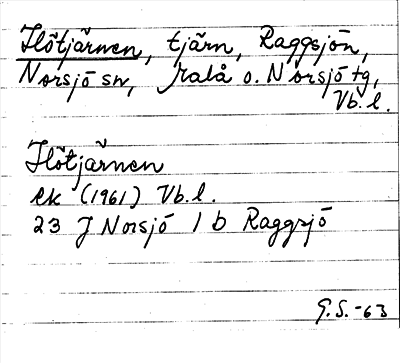 Flötjärnen, tjärn, Raggsjön,
Norsjö sn, Malå o. Norsjö tg,
Vb. l.
Flötjärnen
ek (1961) Vb. l.
23 J Norsjö 1 b Raggsjö
G.S. -63